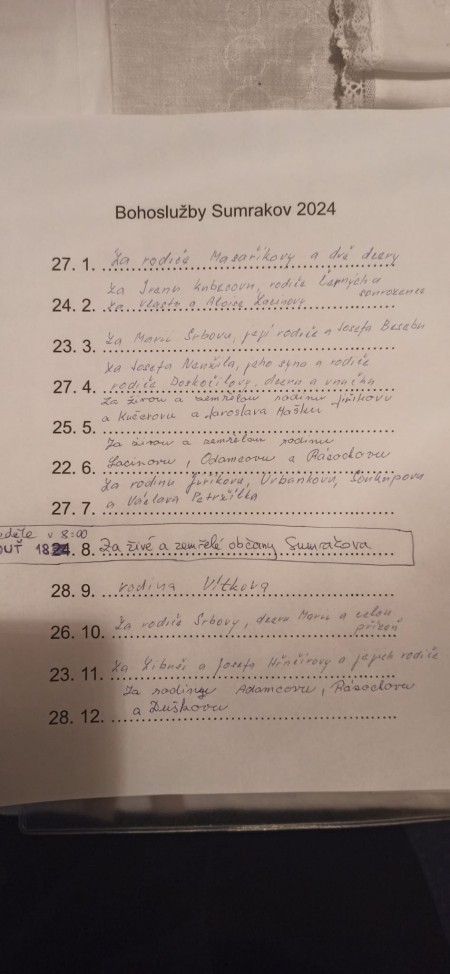 Bohoslužby Sumrakov 2024
27. 1. Za rodiče Masaříkovy a dvě dcery
Za Ivanu Kubecovu, rodiče a sourozence
24. 2. za Vlastu a Aloise Lacinovy
23. 3. Za Marii Srbovu, její rodiče a Josefa Besedu
Za Josefa , jeho syna a rodiče
27. 4. rodiče Doskočilovy, dceru a vnučku
Za živou a zemřelou rodinu Jiříkovu
25. 5. a Kučerovu a Jaroslava Mašku
Za živou a zemřelou rodinu
22. 6. Lacinovu, Adamcovu a
Za rodinu Jiříkova, Urbánkova,
27. 7. a Václava Petržílka
v 8:00
18. 8. Za živé a zemřelé občany Sumrakova
28. 9. rodina Vítkova
26. 10. Za rodiče Srbovy, dceru Marii a celou
přízeň
23. 11. Za Libuši a Josefa a jejich rodiče
Za rodinu Adamcovu,
28. 12. a Duškovu